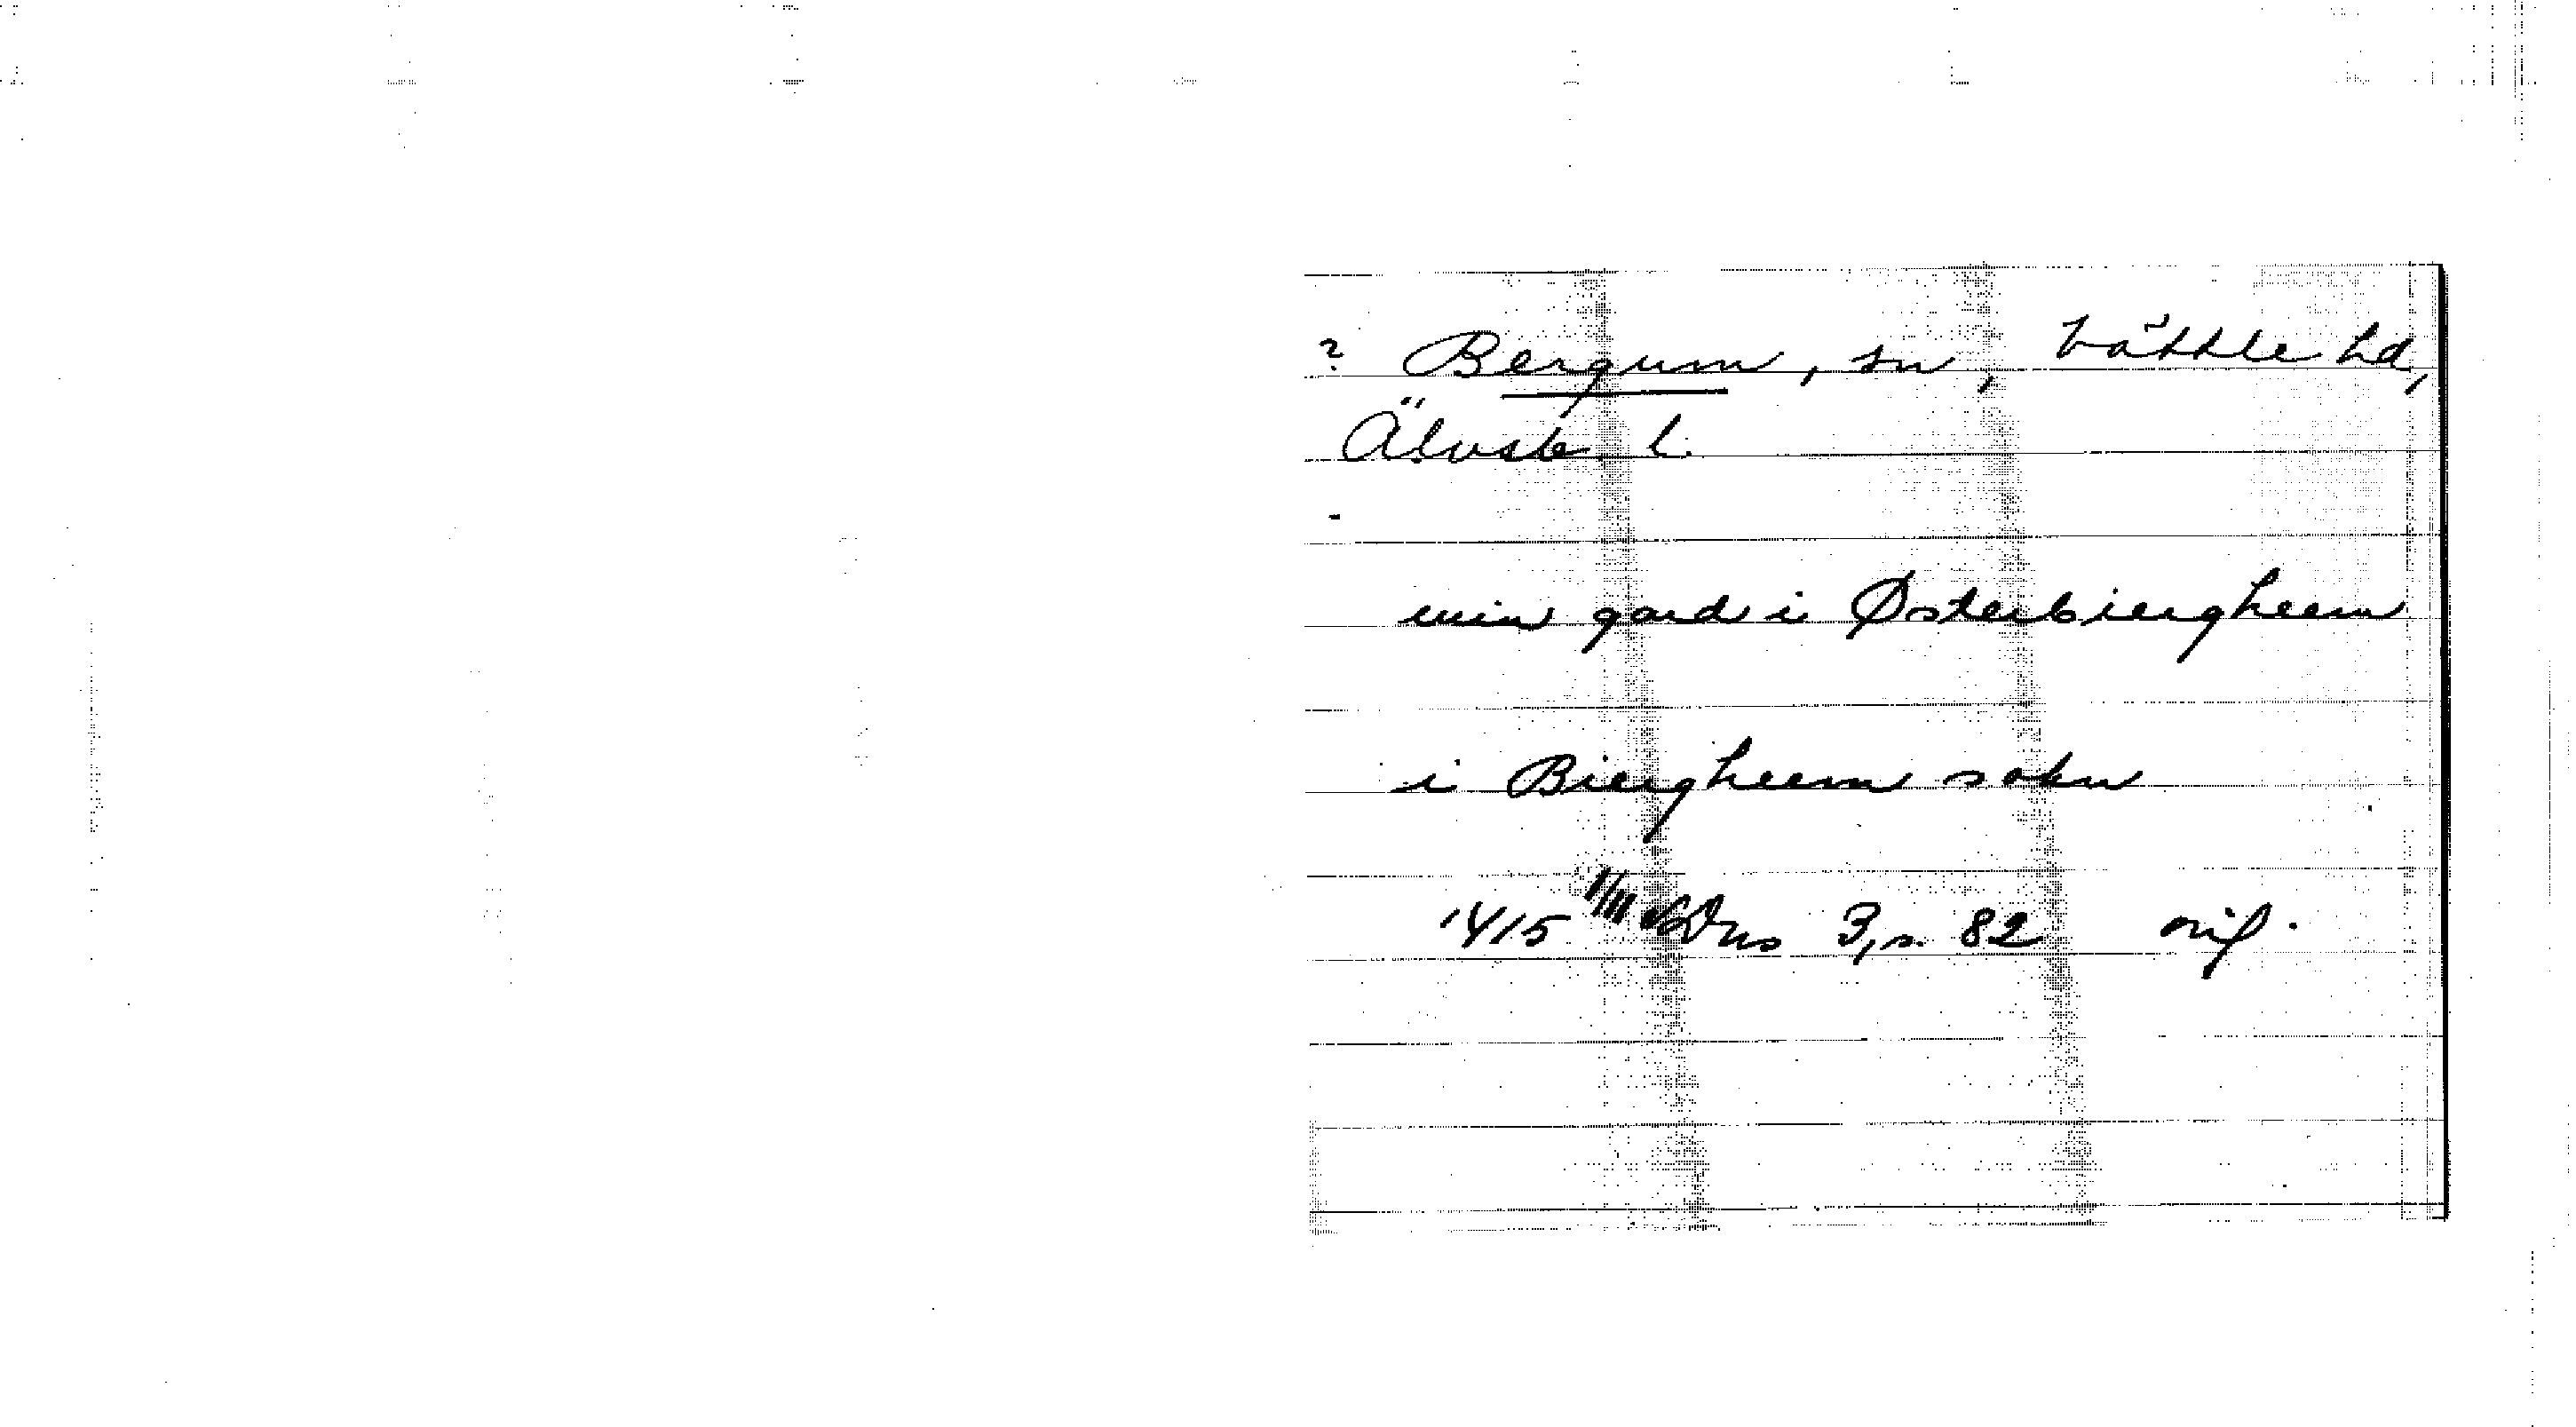 ? Bergum, sn, Vättle hd,
Älvsb. l.
min gard i Østerbiergheem
i Biergheem sokn
1415 SDns 3, s. 82 orig.